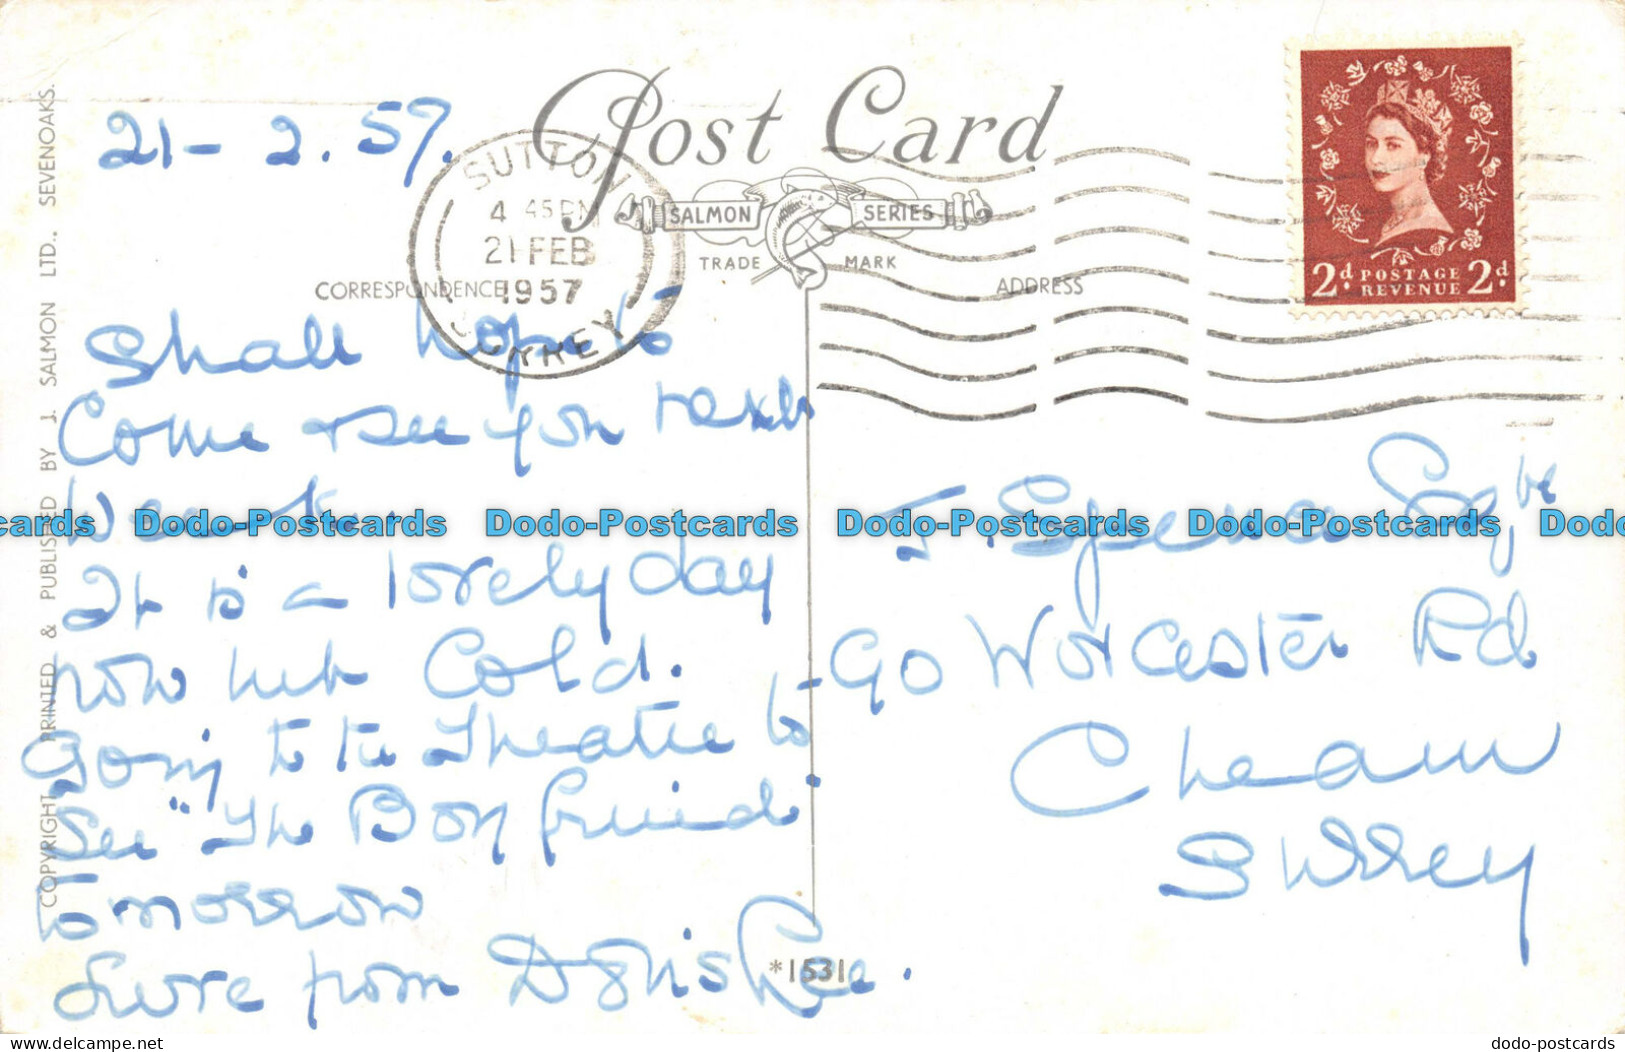 Post Card
21-2.57.
SUTTON
4 45 PM
21 FEB
1957
SURREY
SALMON SERIES
TRADE MARK
CORRESPONDENCE
ADDRESS
2d POSTAGE REVENUE 2d
COPYRIGHT PRINTED & PUBLISHED BY J. SALMON LTD., SEVENOAKS.
Shall hope to
Come & see you next
Week.
It is a lovely day
now but Cold.
Going to the Theatre to
See "The Boy friend"
tomorrow
Love from Doris
*1531
J. Spence Esq
90 Worcester Rd
Cheam
Surrey
cards Dodo-Postcards Dodo-Postcards Dodo-Postcards Dodo-Postcards Dodo
https://www.delcampe.net/en_US/collectibles/store/dodo-postcards
dodo-postcards